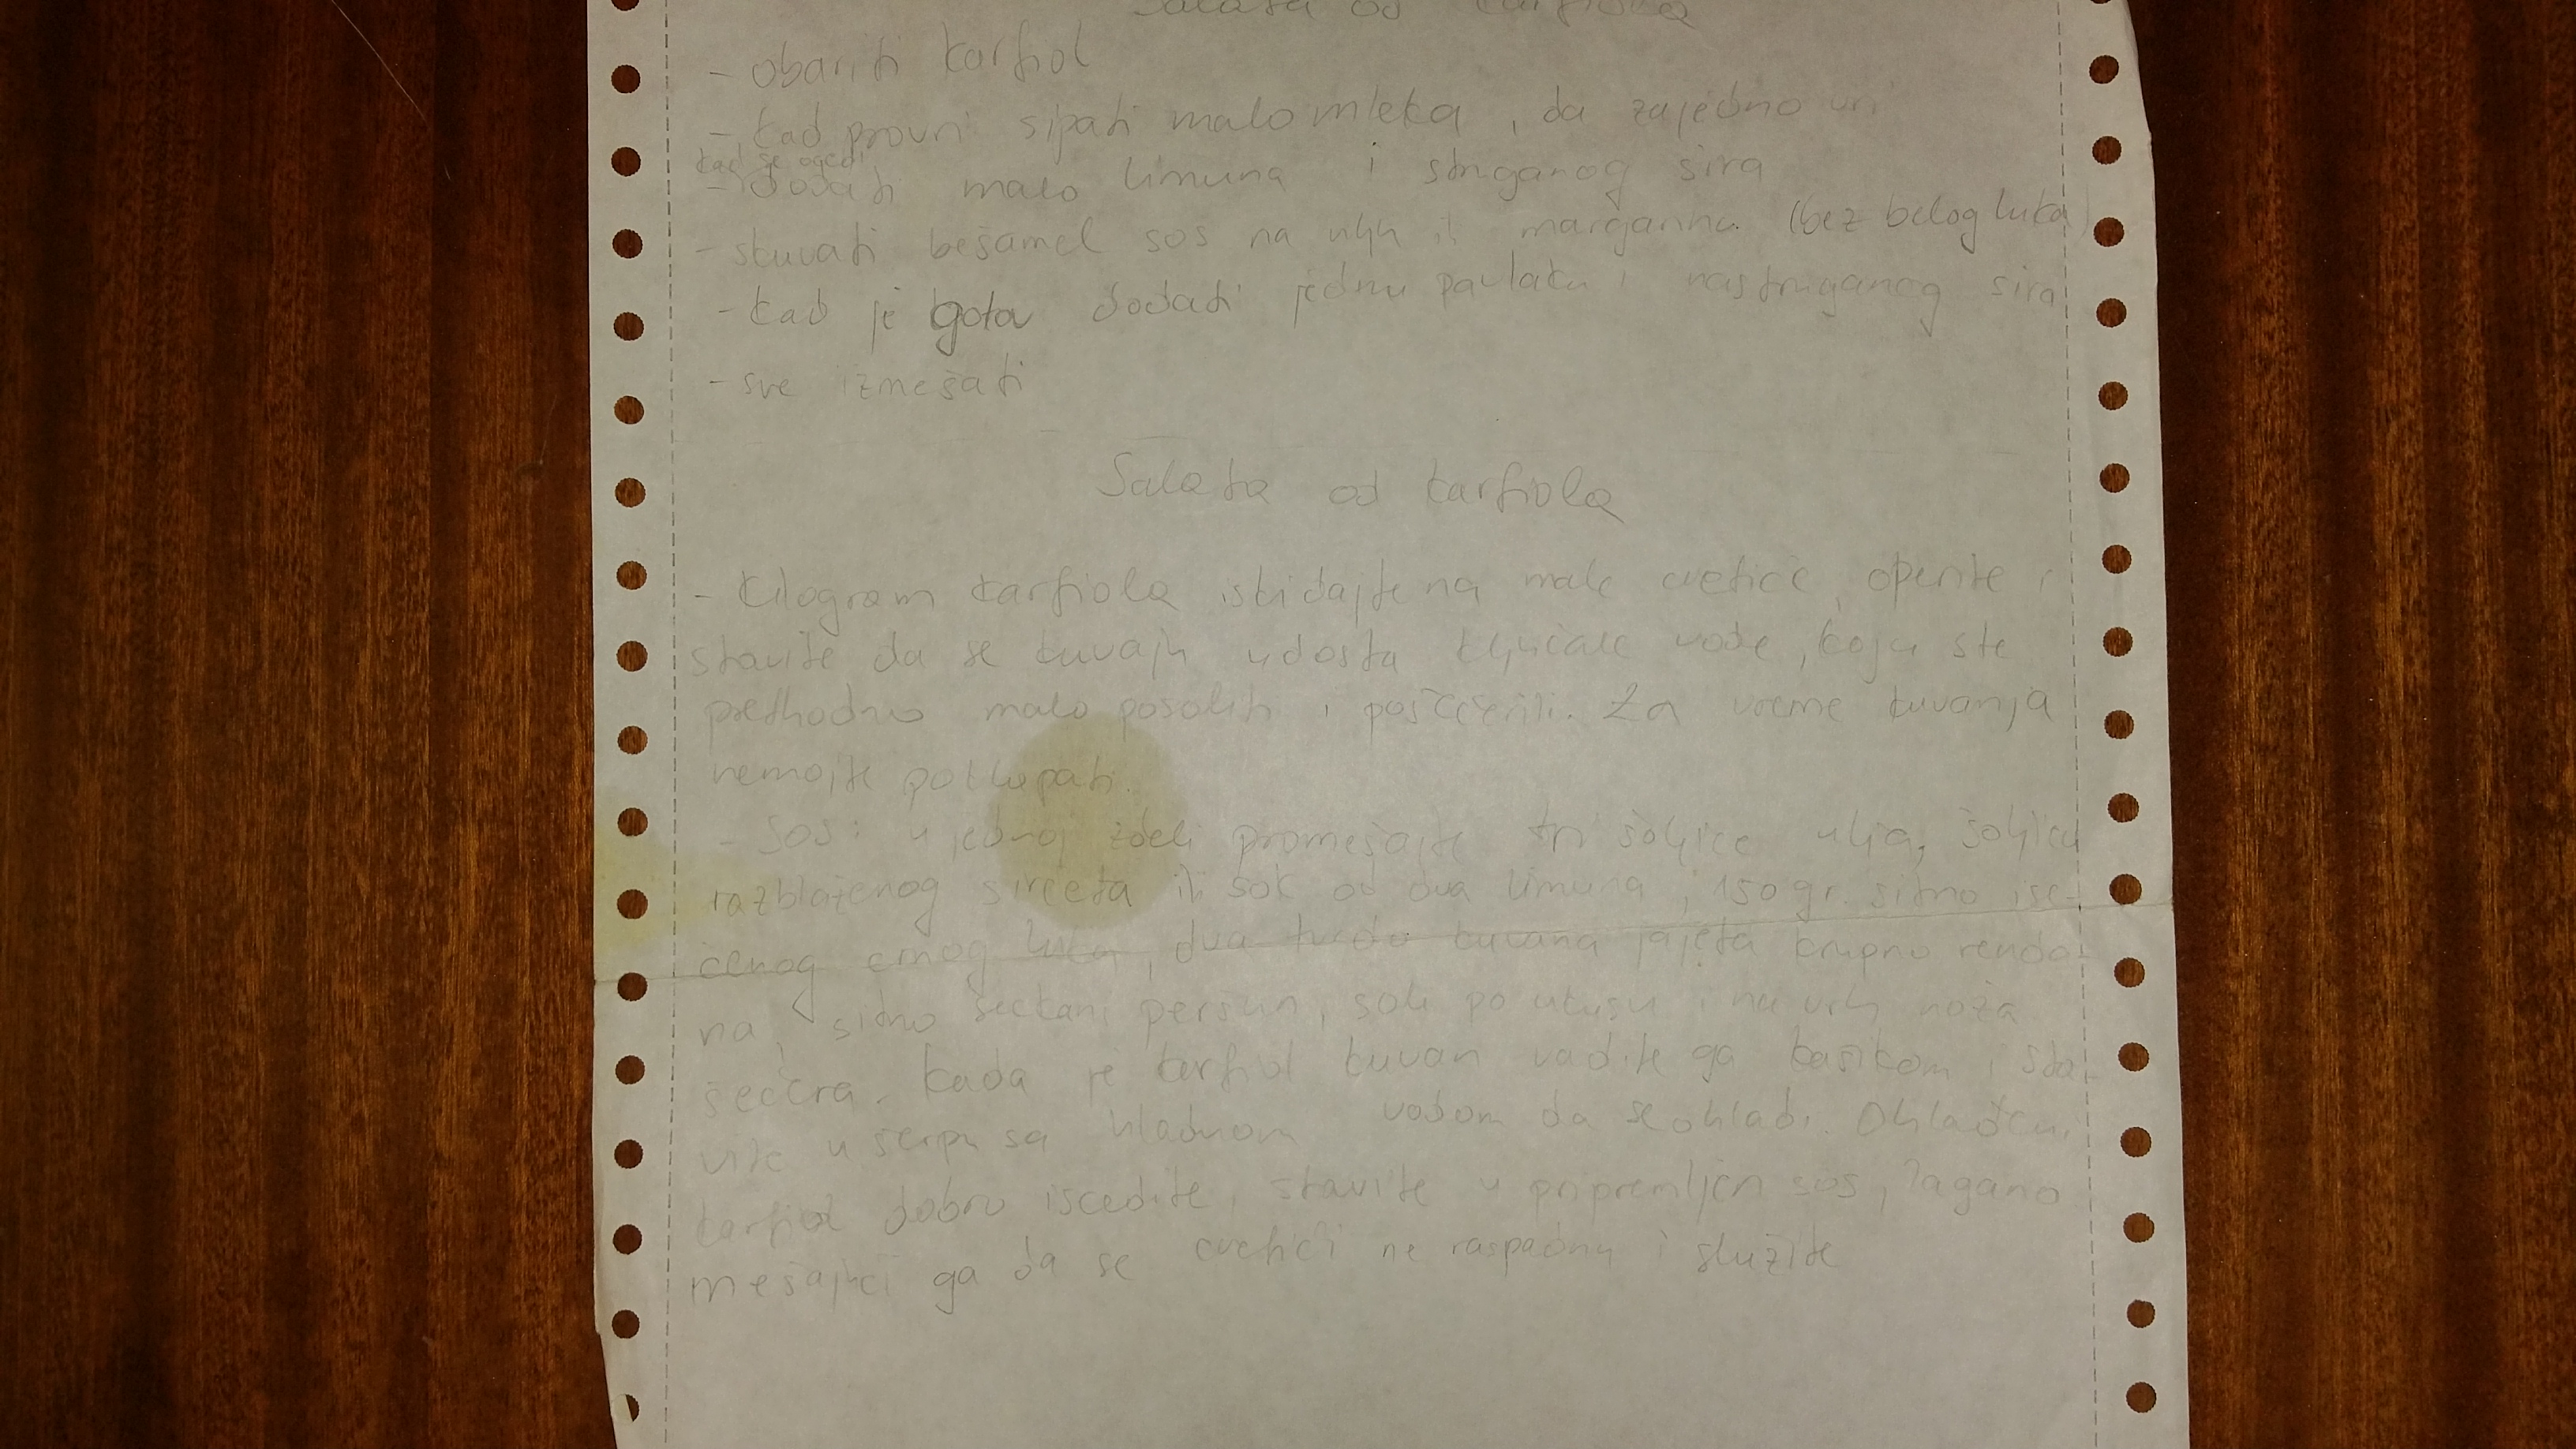 Salata od karfiola
- obariti karfiol
- kad provri sipati malo mleka, da zajedno vri
kad se ocedi
- dodati malo limuna i struganog sira
- skuvati bešamel sos na ulju ili margarinu (bez belog luka)
- kad je gotov dodati jednu pavlaku i nastruganog sira
- sve izmešati
Salata od karfiola
- Kilogram karfiola iskidajte na male cvetiće, operite i
stavite da se kuvaju u dosta ključale vode, koju ste
prethodno malo posolili i pošećerili. Za vreme kuvanja
nemojte poklopati.
- Sos: u jednoj zdeli promešajte tri šoljice ulja, šoljicu
razblaženog sirćeta ili sok od dva limuna, 150 gr. sitno ise-
čenog crnog luka, dva tvrdo kuvana jajeta krupno renda-
na, sitno seckani peršun, soli po ukusu i na vrh noža
šećera. Kada je karfiol kuvan vadite ga kašikom i sta-
vite u šerpu sa hladnom vodom da se ohladi. Ohlađeni
karfiol dobro iscedite, stavite u pripremljen sos, lagano
mešajući ga da se cvetići ne raspadnu i služite